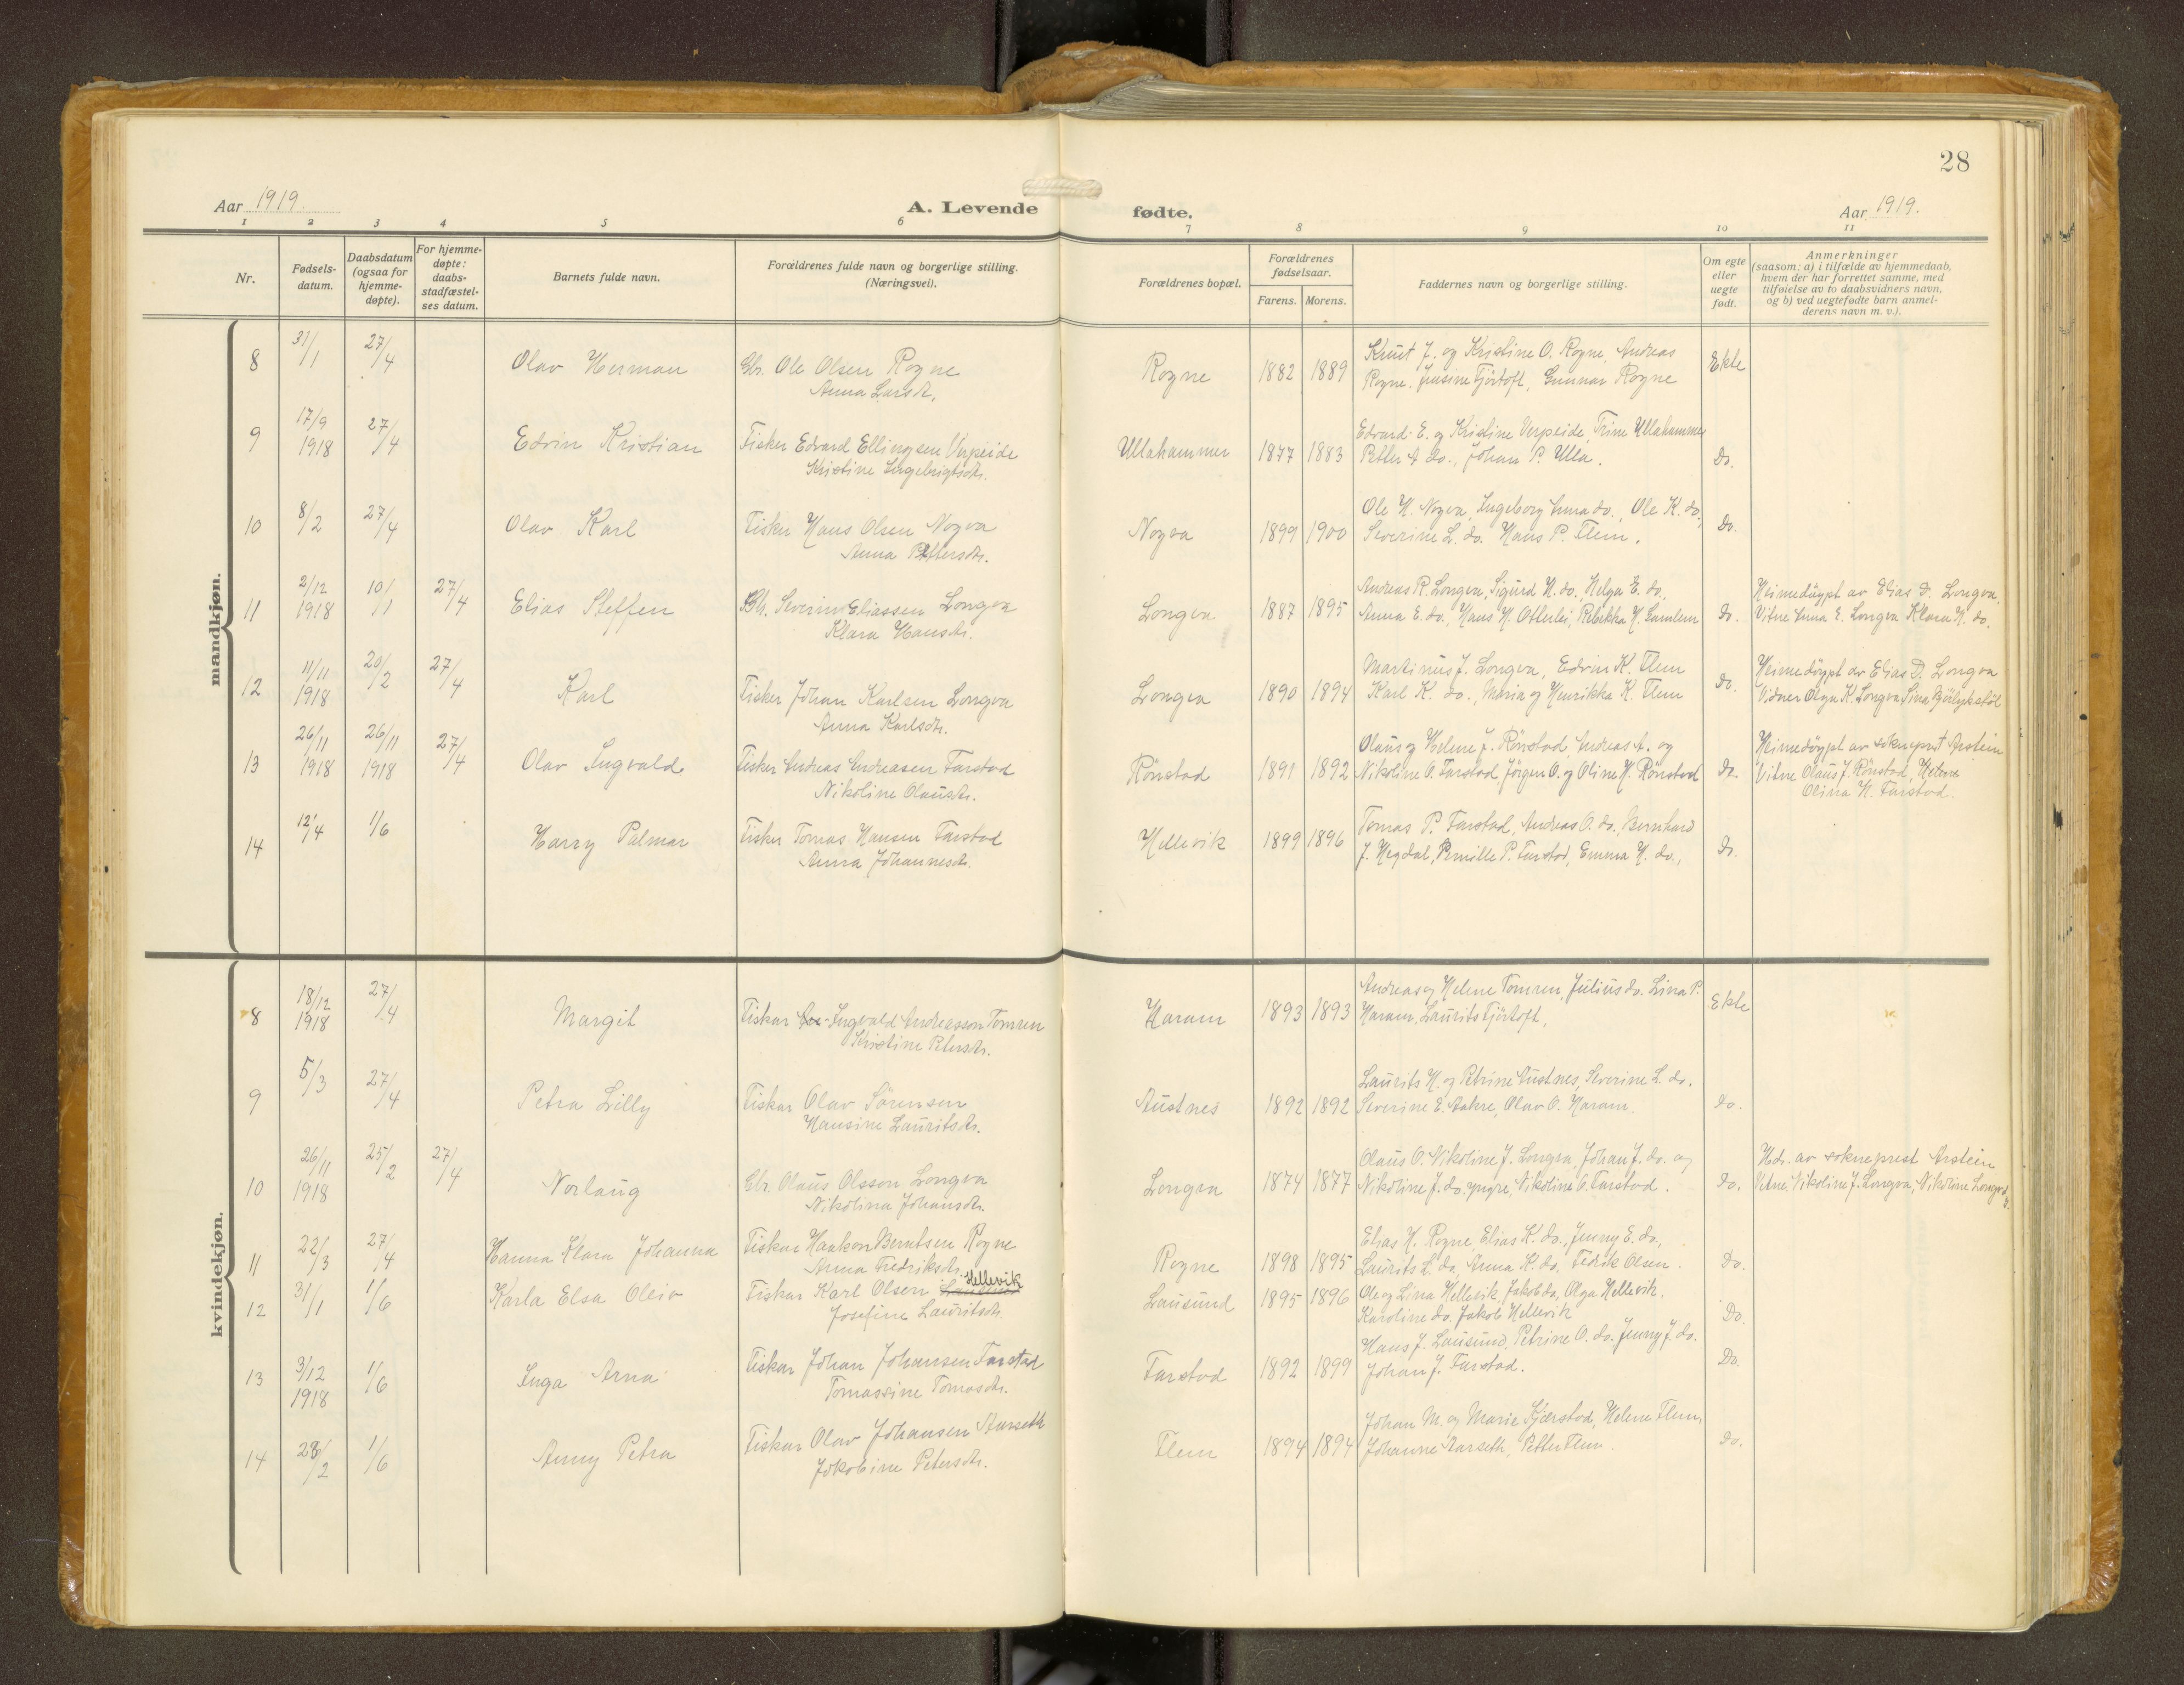 28
Aar 1919.
A. Levende fødte.
Aar 1919.
1 2 3 4 5 6 7 8 9 10 11
Nr.
Fødsels-
datum.
Daabsdatum
(ogsaa for
hjemme-
døpte).
For hjemme-
døpte:
daabs-
stadfæstel-
ses datum.
Barnets fulde navn.
Forældrenes fulde navn og borgerlige stilling.
(Næringsvei).
Forældrenes bopæl.
Forældrenes
fødselsaar.
Farens. Morens.
Faddernes navn og borgerlige stilling.
Om egte
eller
uegte
født.
Anmerkninger
(saasom: a) i tilfælde av hjemmedaab,
hvem der har forrettet samme, med
tilføielse av to daabsvidners navn,
og b) ved uegtefødte barn anmel-
derens navn m. v.).
mandkjøn.
8 31/1 27/4 Olav Herman Gbr. Ole Olsen Rogne
Anna Larsdr.
Rogne 1882 1889
Knut J. og Kristine O. Rogne, Andreas
Rogne. Jensine Fjørtoft, Gunnar Rogne
Ekte
9 17/9 1918 27/4 Edvin Kristian Fisker Edvard Ellingsen Verpeide
Kristine Ingebrigtsdr.
Ullahammer 1877 1883
Edvard E. og Kristine Verpeide, Trine Ullahammer
Petter A do., Johan P. Ulla.
Do.
10 8/2 27/4 Olav Karl Fisker Hans Olsen Nogva
Anna Pettersdr.
Nogva 1899 1900
Ole H. Nogva, Ingeborg Anna do., Ole K. do,
Severine L. do. Hans P. Flem.
Do.
11 2/12 1918 10/1 27/4 Elias Steffen Gbr. Severin Eliassen Longva
Klara Hansdr.
Longva 1887 1895
Andreas R. Longva, Sigurd H. do. Helga E. do.,
Anna E. do., Hans H. Otterlei, Rebekka H. Gamlem
Do.
Heimedøypt av Elias D. Longva.
Vitne Anna E. Longva Klara H. do.
12 11/11 1918 20/2 27/4 Karl Fisker Johan Karlsen Longva
Anna Karlsdr.
Longva 1890 1894
Martinus J. Longva, Edvin K. Flem
Karl K. do., Maria og Henrikka K. Flem
Do.
Heimedøypt av Elias D. Longva
Vidner Olga K. Longva,
13 26/11 1918 26/11 1918 27/4 Olav Ingvald Fisker Andreas Andreasen Farstad
Nikoline Olausdr.
Rønstad 1891 1892
Olaus og Helene J. Rønstad Andreas A. og
Nikoline O. Farstad, Jørgen O. og Oline H. Rønstad
Do.
Heimedøypt av sokneprest Arstein
Vitne Olaus J. Rønstad, Helene
Olina H. Farstad.
14 12/4 1/6 Harry Palmar Fisker Tomas Hansen Farstad
Anna Johannesdr.
Hellevik 1899 1896
Tomas P. Farstad, Andreas O. do., Bernhard
J. Hegdal, Pernille P. Farstad, Emma H. do.,
Do.
kvindekjøn.
8 18/12 1918 27/4 Margit Fiskar Ingvald Andreasson Tomren
Kristine Petersdr.
Haram 1893 1893
Andreas og Helene Tomren, Julius do. Lina P.
Haram, Laurits Fjørtoft,
Ekte
9 5/3 27/4 Petra Lilly Fiskar Olav Sørensen
Hansine Lauritsdr.
Austnes 1892 1892
Laurits H. og Petrine Austnes, Severine L. do.
Severine E. Aakre, Olav O. Haram.
Do.
10 26/11 1918 25/2 27/4 Norlaug Gbr. Olaus Olsson Longva
Nikolina Johansdr.
Longva 1874 1877
Olaus O. Nikoline J. Longva, Johan J. do. og
Nikoline J. do. yngre, Nikoline O. Farstad.
Do.
Hdr. av sokneprest Arstein
Vitne. Nikoline J. Longva, Nikoline Longva
11 22/3 27/4 Hanna Klara Johanna Fiskar Haakon Berntsen Rogne
Anna Fredriksdr.
Rogne 1898 1895
Elias H. Rogne, Elias K. do., Jenny E. do.,
Laurits L. do, Anna K. do, Fedrik Olsen.
Do.
12 31/1 1/6 Karla Elsa Oliv Fiskar Karl Olsen Hellevik
Josefine Lauritsdr.
Lausund 1895 1896
Ole og Lina Hellevik, Jakob do, Olga Hellevik.
Karoline do. Jakob Hellevik
Do.
13 3/12 1918 1/6 Inga Arna Fiskar Johan Johansen Farstad
Tomassine Tomasdr.
Farstad 1892 1899
Hans J. Lausund, Petrine O. do. Jenny J. do.
Johan J. Farstad.
Do.
14 28/2 1/6 Anny Petra Fiskar Olav Johansen Aarseth
Jakobine Petersdr.
Flem 1894 1894
Johan M. og Marie Kjærstad, Helene Flem,
Johanne Aarseth, Petter Flem.
Do.